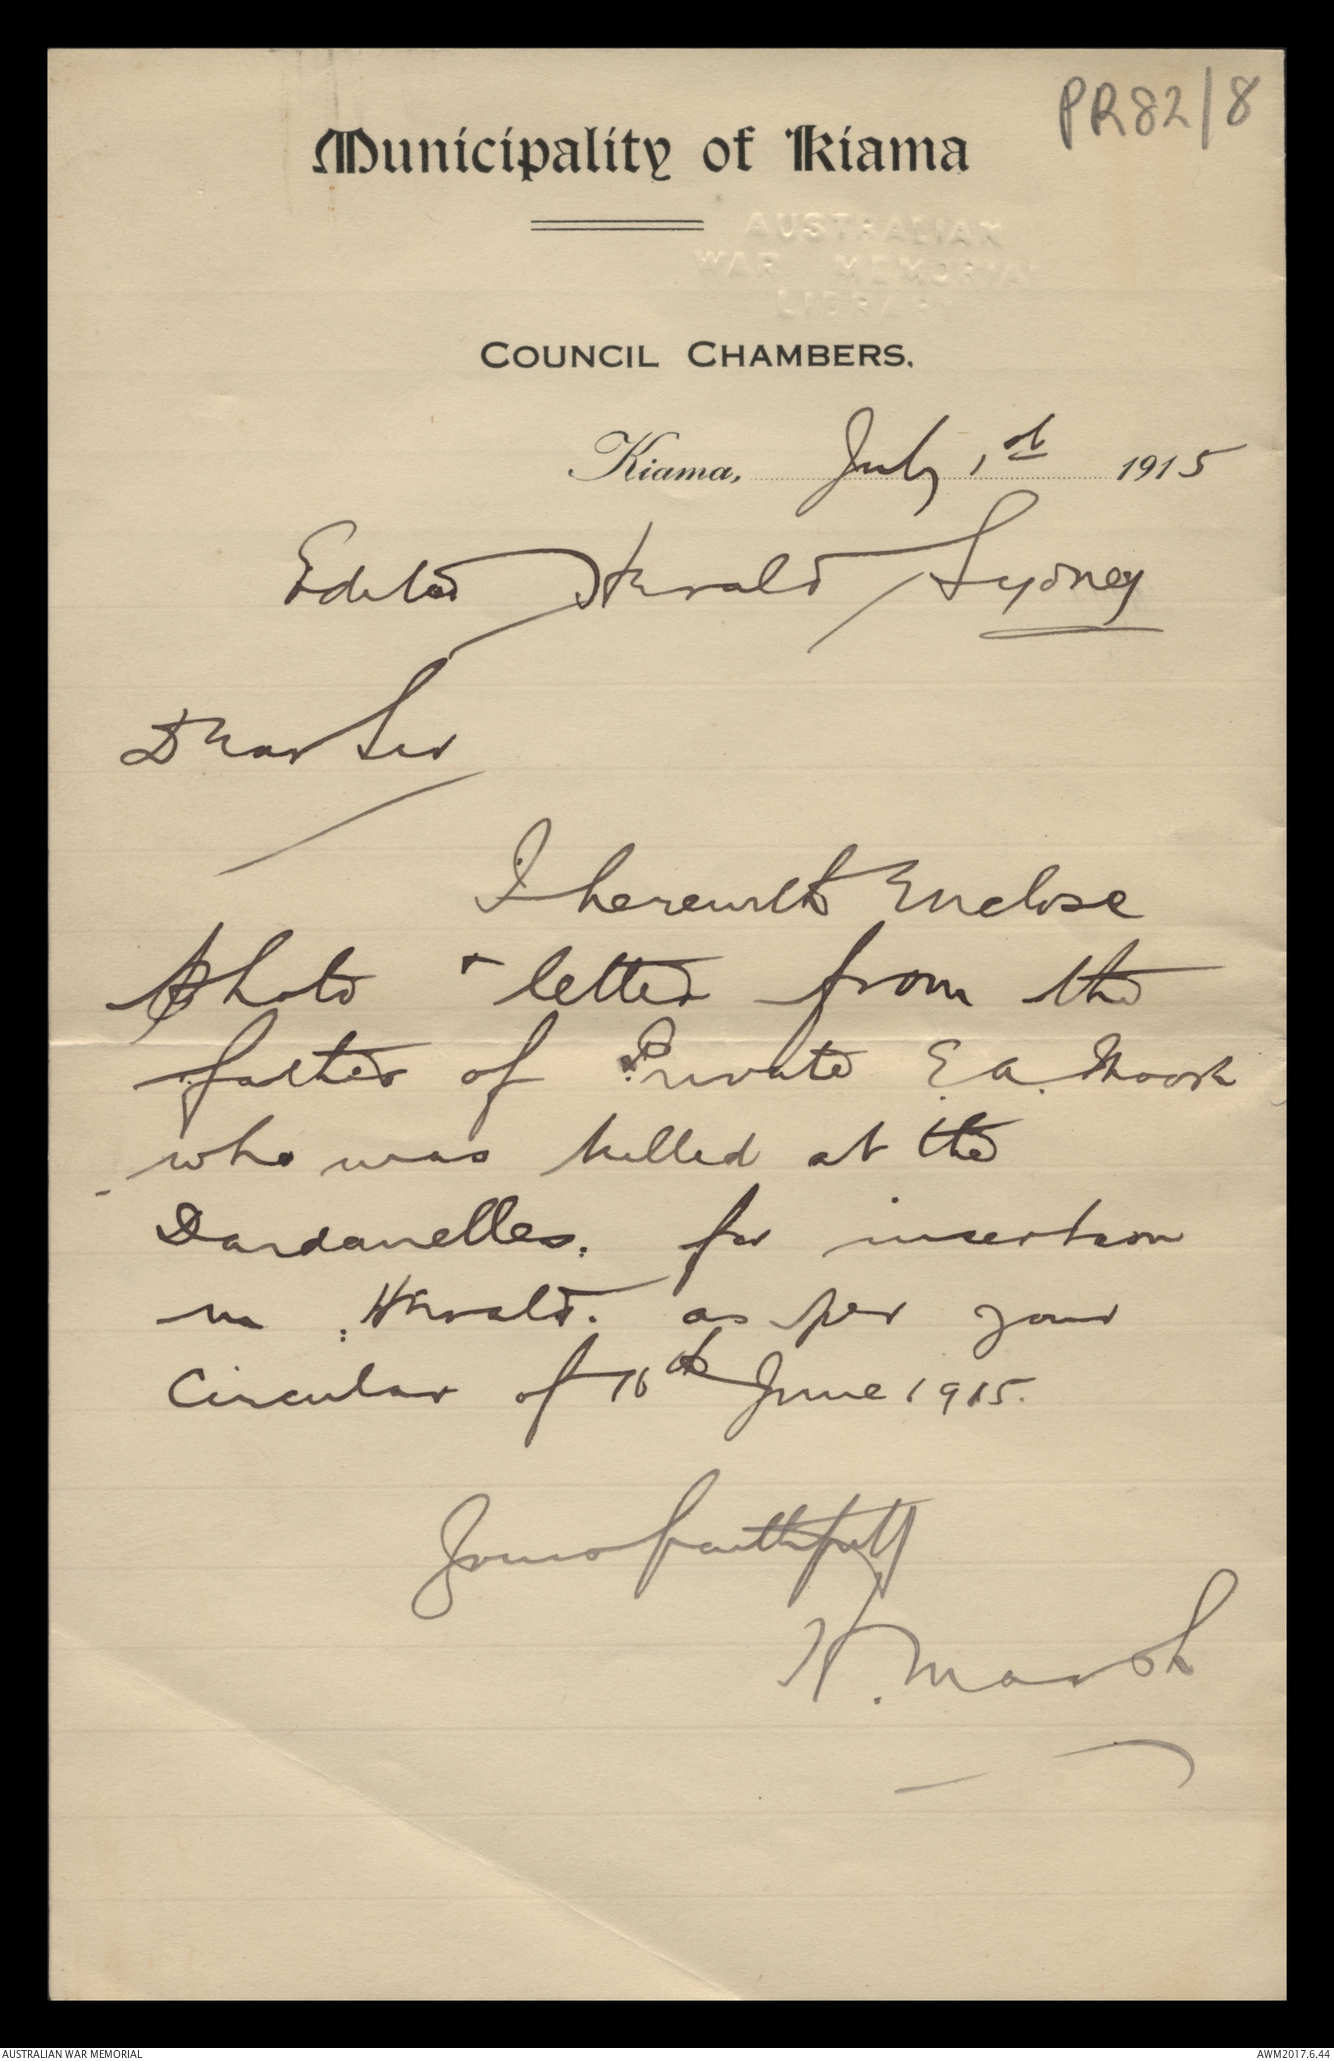 PR82/8
Municipality of Kiama
AUSTRALIAN
WAR MEMORIAL
LIBRARY
COUNCIL CHAMBERS.
Kiama, July 1st 1915
Editor Herald Sydney
Dear Sir
I herewith Enclose
photo & letter from the
father of Private E.A.
who was killed at the
Dardanelles. for insertion
in Herald. as per your
Circular of 16th June 1915.
Yours faithfully
H. Marsh
AUSTRALIAN WAR MEMORIAL
AWM2017.6.44